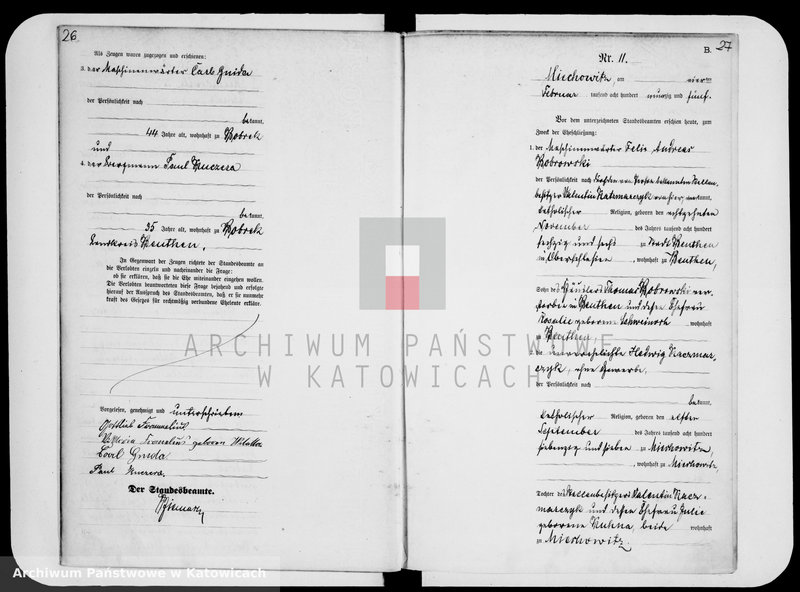 26
Als Zeugen waren zugezogen und erschienen:
3. der Maschinenwärter Carl Gnida
der Persönlichkeit nach
bekannt,
44 Jahre alt, wohnhaft zu Bobrek
und
4. der Bergmann Paul Kuczera
der Persönlichkeit nach
bekannt,
35 Jahre alt, wohnhaft zu Bobrek
Landkreis Beuthen.
In Gegenwart der Zeugen richtete der Standesbeamte an
die Verlobten einzeln und nacheinander die Frage:
ob sie erklären, daß sie die Ehe miteinander eingehen wollen.
Die Verlobten beantworteten diese Frage bejahend und erfolgte
hierauf der Ausspruch des Standesbeamten, daß er sie nunmehr
kraft des Gesetzes für rechtmäßig verbundene Eheleute erkläre.
Vorgelesen, genehmigt und unterschrieben
Gottlieb
geboren
Carl Gnida
Paul Kuczera
Der Standesbeamte.
B. 27
Nr. 11.
Miechowitz am vierten
Februar tausend acht hundert neunzig und fünf.
Vor dem unterzeichneten Standesbeamten erschien heute, zum
Zweck der Eheschließung:
1. der Maschinenwärter Felix Andreas
Bobrowski
der Persönlichkeit nach durch den von Person bekannten Stellen-
besitzer Valentin Kaczmarczyk
katholischer Religion, geboren den achtzehnten
November des Jahres tausend acht hundert
sechzig und sechs zu Stadt Beuthen
in Oberschlesien, wohnhaft zu Beuthen,
Sohn des Häuslers Thomas Bobrowski ver-
storben in Beuthen und dessen Ehefrau
Rosalie geborene wohnhaft
zu Beuthen
2. die unverehelichte Hedwig Kaczmar-
czyk, ohne Gewerbe,
der Persönlichkeit nach
bekannt,
katholischer Religion, geboren den elften
September des Jahres tausend acht hundert
siebenzig und sieben zu Miechowitz,
, wohnhaft zu Miechowitz,
Tochter des Stellenbesitzers Valentin Kacz-
marczyk und dessen Ehefrau Julie
geborene Kuhna, beide wohnhaft
zu Miechowitz.
ARCHIWUM PAŃSTWOWE
W KATOWICACH
Archiwum Państwowe w Katowicach